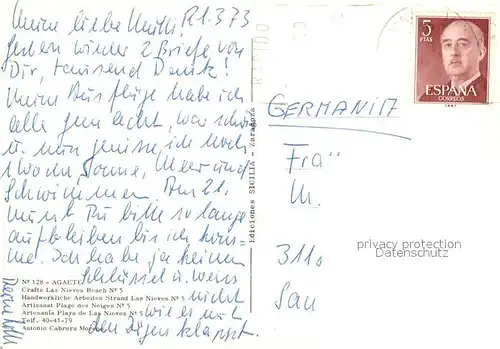 Meine liebe Mutti! R 1.3.73
Gestern wieder 2 Briefe von
Dir, tausend Dank!
Meine Ausflüge habe ich
alle gemacht, war schön
u. nun geniesse ich noch
1 Woche Sonne, Meer und
Schwimmen. Am 21.
musst Du bitte so lange
aufbleiben bis ich kom-
me. Ich habe ja keinen
Schlüssel u. weiss
nicht
wie es mit
den Zügen klappt.
Nº 128 - AGAETE
Crafts Las Nieves Beach Nº 5
Handwerkliche Arbeiten Strand Las Nieves Nº 5
Artisanat Plage des Neiges Nº 5
Artesanía Playa de Las Nieves Nº 5
Telf. 40-41-79
Antonio Cabrera
Ediciones SICILIA - Zaragoza
5
PTAS
ESPAÑA
CORREOS
GERMANIA
Frau
M.
311
San
privacy protection
Datenschutz